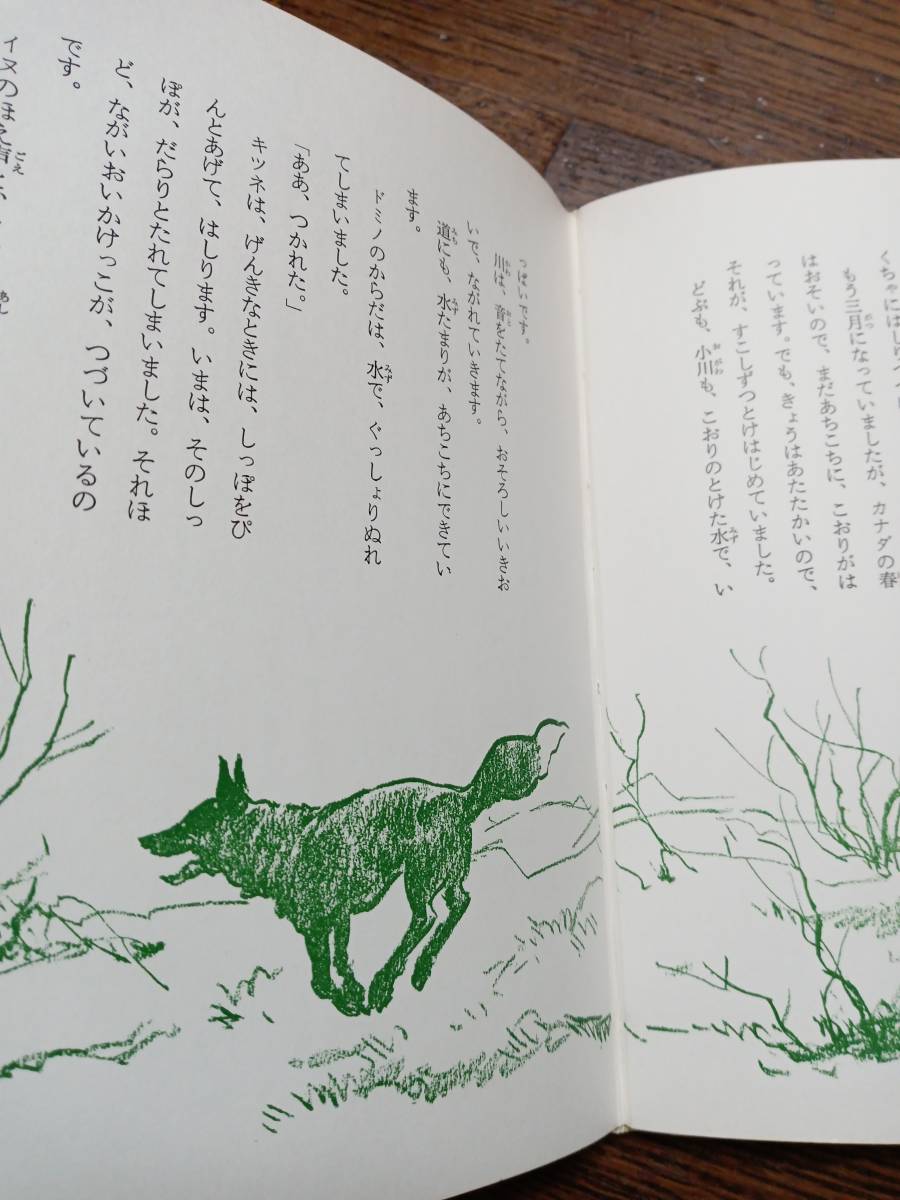 くちゃにはしり
もう三月になっていましたが、カナダの春
はおそいので、まだあちこちに、こおりがは
っています。でも、きょうはあたたかいので、
それが、すこしずつとけはじめていました。
どぶも、小川も、こおりのとけた水で、い
っぱいです。
川は、音をたてながら、おそろしいいきお
いで、ながれていきます。
道にも、水たまりが、あちこちにできてい
ます。
ドミノのからだは、水で、ぐっしょりぬれ
てしまいました。
「ああ、つかれた。」
キツネは、げんきなときには、しっぽをぴ
んとあげて、はしります。いまは、そのしっ
ぽが、だらりとたれてしまいました。それほ
ど、ながいおいかけっこが、つづいているの
です。
イヌのほえ声